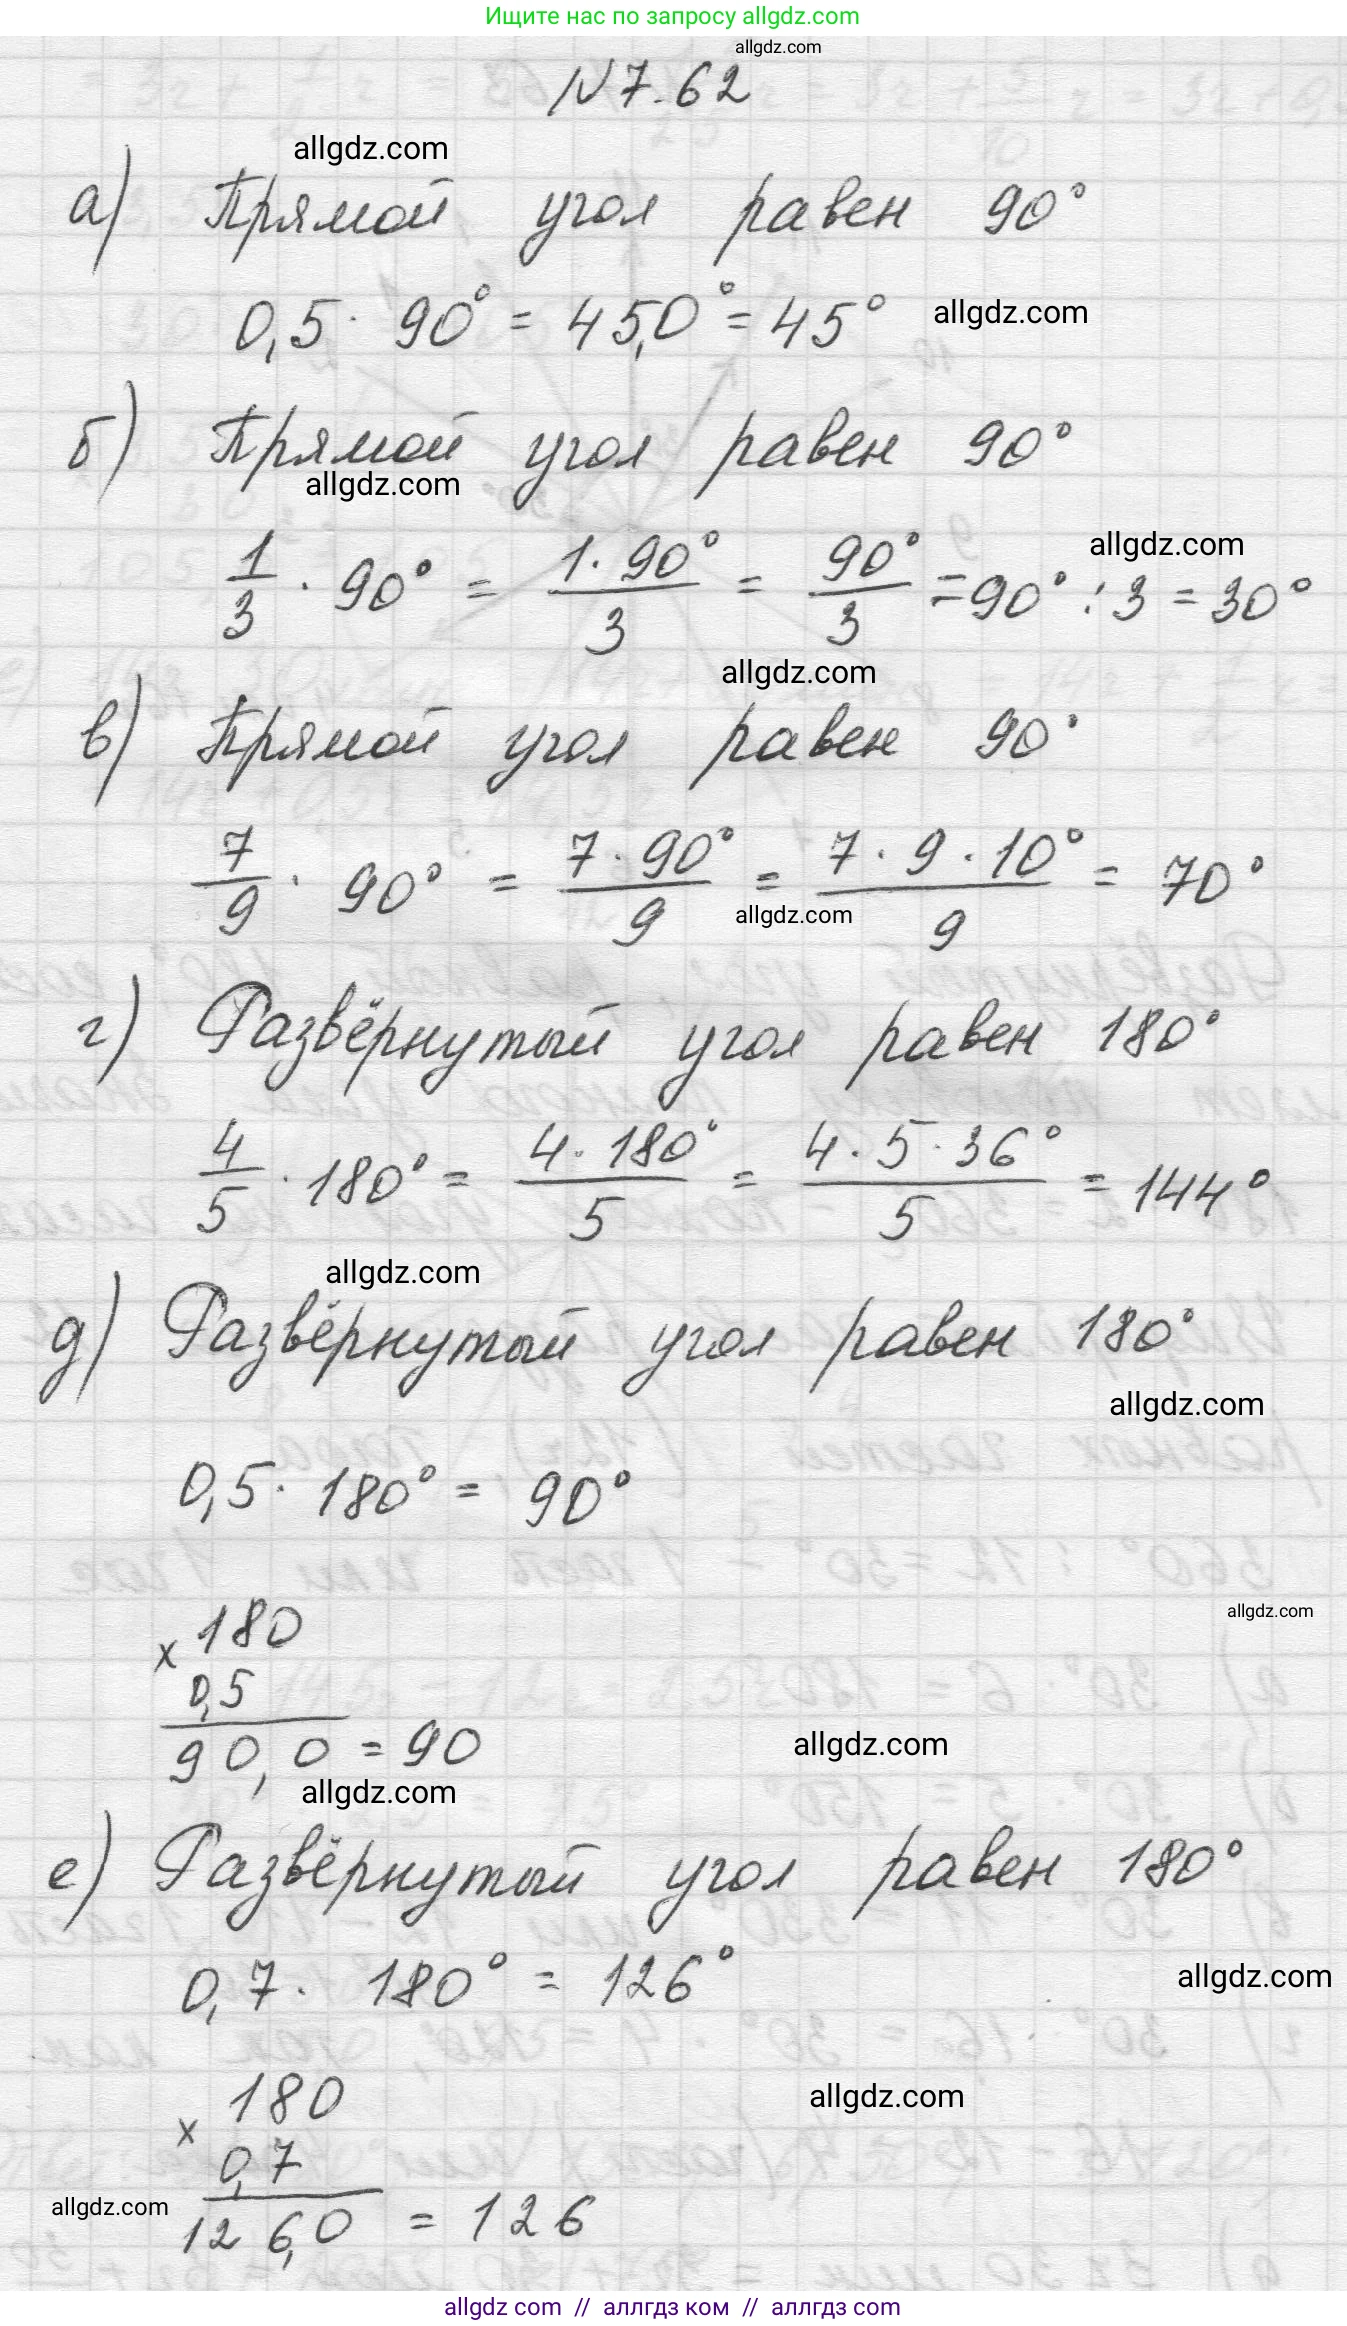 Ищите нас по запросу allgdz.com
allgdz.com
№7.62
allgdz.com
а) Прямой угол равен 90°
0,5 · 90° = 45,0° = 45°
allgdz.com
б) Прямой угол равен 90°
allgdz.com
allgdz.com
1/3 · 90° = 1·90°/3 = 90°/3 = 90° : 3 = 30°
allgdz.com
в) Прямой угол равен 90°
7/9 · 90° = 7·90°/9 = 7·9·10°/9 = 70°
allgdz.com
г) Развёрнутый угол равен 180°
4/5 · 180° = 4·180°/5 = 4·5·36°/5 = 144°
allgdz.com
д) Развёрнутый угол равен 180°
allgdz.com
0,5 · 180° = 90°
180
allgdz.com
×
0,5
90,0 = 90
allgdz.com
allgdz.com
е) Развёрнутый угол равен 180°
0,7 · 180° = 126°
allgdz.com
180
allgdz.com
×
0,7
allgdz.com
126,0 = 126
allgdz com // аллгдз ком // аллгдз com